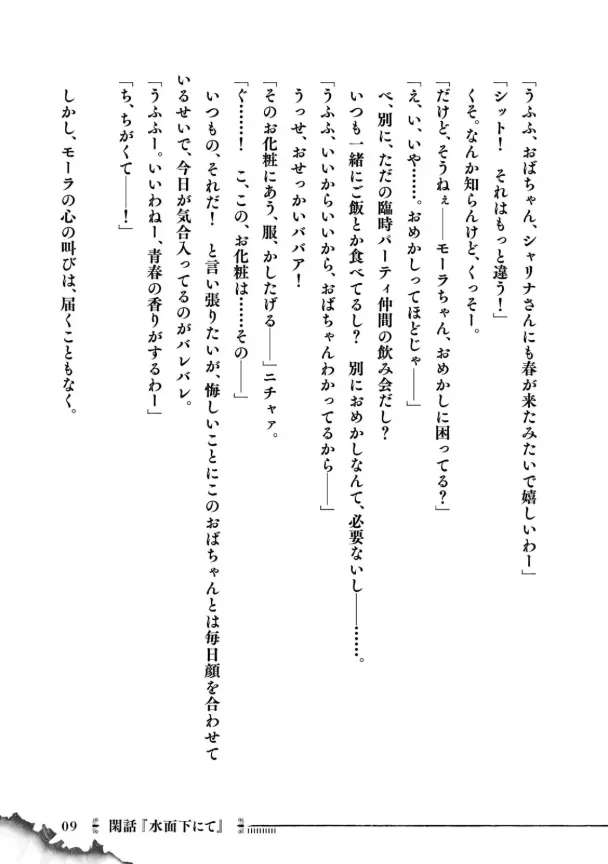 「うふふ、おばちゃん、シャリナさんにも春が来たみたいで嬉しいわー」
「シット！　それはもっと違う！」
くそ。なんか知らんけど、くっそー。
「だけど、そうねぇ――モーラちゃん、おめかしに困ってる？」
「え、い、いや……。おめかしってほどじゃ――」
べ、別に、ただの臨時パーティ仲間の飲み会だし？
いつも一緒にご飯とか食べてるし？　別におめかしなんて、必要ないし――……。
「うふふ、いいからいいから、おばちゃんわかってるから――」
うっせ、おせっかいババア！
「そのお化粧にあう、服、かしたげる――」ニチャァ。
「ぐ……！　こ、この、お化粧は……その――」
いつもの、それだ！　と言い張りたいが、悔しいことにこのおばちゃんとは毎日顔を合わせて
いるせいで、今日が気合入ってるのがバレバレ。
「うふふー。いいわねー、青春の香りがするわー」
「ち、ちがくて――！」
しかし、モーラの心の叫びは、届くこともなく。
09　閑話『水面下にて』